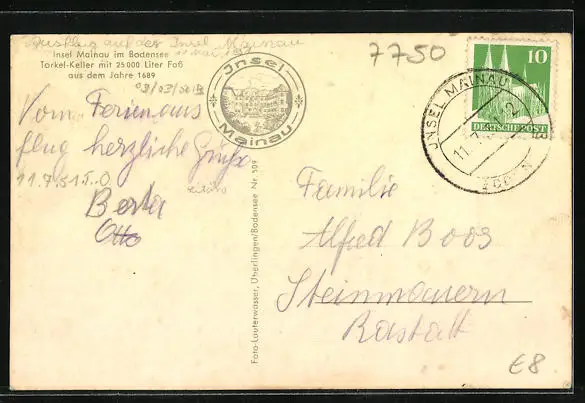 Ausflug auf der Insel Mainau
Insel Mainau im Bodensee
Torkel-Keller mit 25000 Liter Faß
aus dem Jahre 1689
Vom Ferienaus
flug herzliche Grüße
11.7.51
Berta
Otto
Insel
Mainau
Foto-Lauterwasser, Überlingen/Bodensee Nr. 509
7750
10
DEUTSCHE POST
INSEL MAINAU
11.7.
Familie
Alfred Boos
Steinmauern
Rastatt
€8